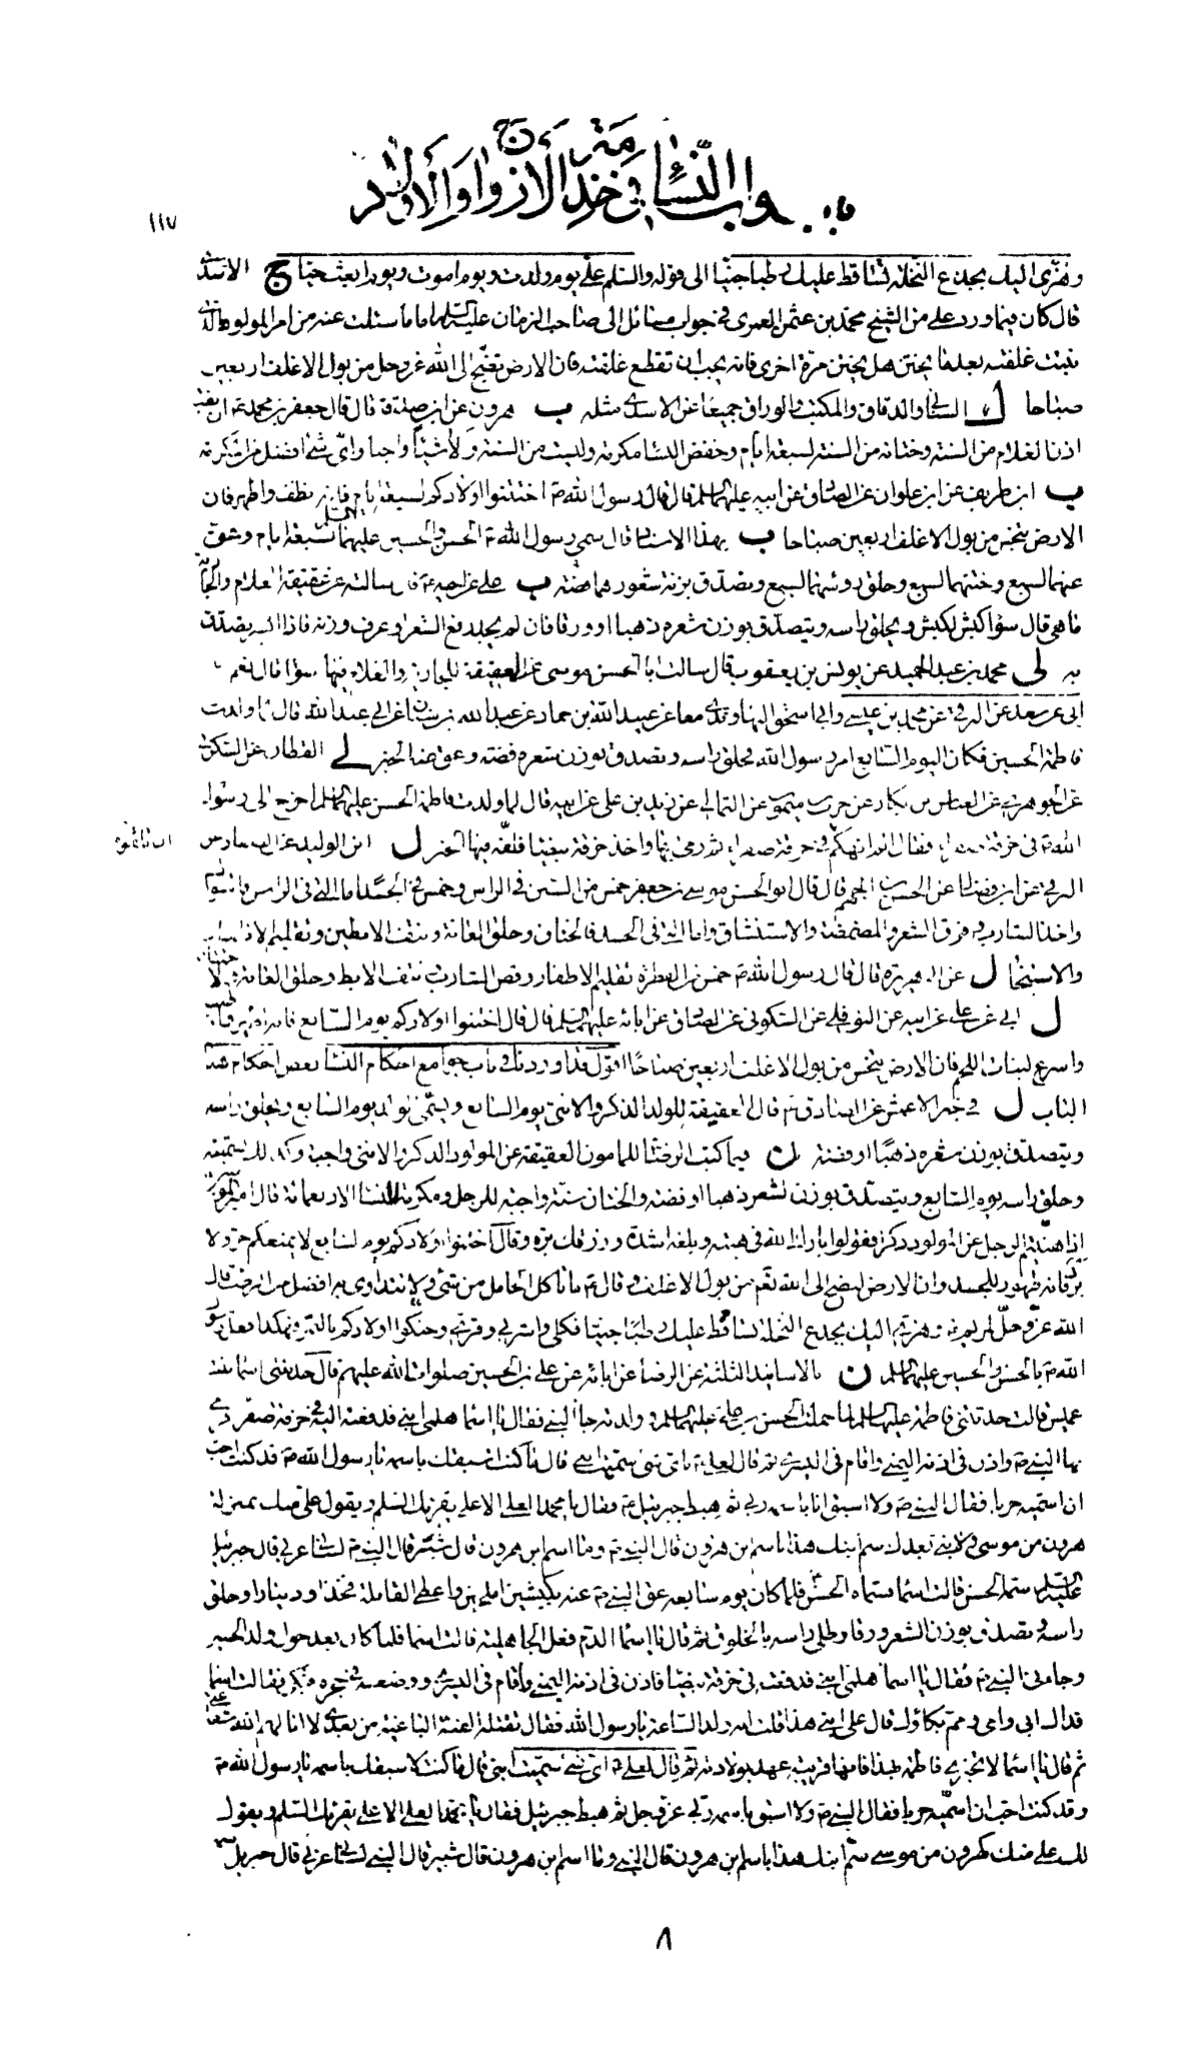 ١١٧
وهزّي اليك بجذع النخلة تساقط عليك رطبا جنيا الى قوله والسلم علي يوم ولدت ويوم اموت ويوم ابعث حيا ج الاسدي
قال كان فيما ورد علي من الشيخ محمد بن عثمن العمري في جواب مسائل الى صاحب الزمان عليه السلم اما ما سئلت عنه من امر المولود الذي
نبتت غلفته بعدما يختن هل يختن مرة اخرى فانه يجب ان تقطع غلفته فان الارض تضج الى الله عز وجل من بول الاغلف اربعين
صباحا ك السناني والدقاق والمكتب والوراق جميعا عن الاسدي مثله ب هرون عن ابن صدقة قال قال جعفر بن محمد ع ان ثقب
اذن الغلام من السنة وختانه من السنة لسبعة ايام وخفض النسا مكرمة وليست من السنة ولا شيئا واجبا واي شئ افضل من المكرمة
ب ابن طريف عن ابن علوان عن الصادق عن ابيه عليهما السلم قال قال رسول الله ص اختنوا اولادكم لسبعة ايام فانه نظف واطهر فان
الارض تنجس من بول الاغلف اربعين صباحا ب بهذا الاسناد قال سمى رسول الله ص الحسن والحسين عليهما السلم لسبعة ايام وعق
عنهما لسبع وختنهما لسبع وحلق رؤسهما لسبع وتصدق بزنة شعورهما فضة ب علي عن اخيه ع قال سالته عن عقيقة الغلام والجارية
ما هي قال سوا كبش كبش ويحلق راسه ويتصدق بوزن شعره ذهبا او ورقا فان لم يجد رفع الشعر وعرف وزنه فاذا ايسر يصدق
به محمد بن عبد الحميد عن يونس بن يعقوب قال سالت ابا الحسن موسى عن العقيقة للجارية والغلام فيها سوا قال نعم
ابي عن سعد عن البرقي عن محمد بن عيسى وابي اسحق النهاوندي معا عن عبيد الله بن حماد عن عبد الله بن سنان عن ابي عبد الله قال لما ولدت
فاطمة الحسين فكان اليوم السابع امر رسول الله فحلق راسه وتصدق بوزن شعره فضة وعق عنه الخبر لي القطان عن السكري
عن الجوهري عن العباس بن بكار عن حرب بن ميمون عن الثمالي عن زيد بن علي عن ابيه قال لما ولدت فاطمة الحسن عليهما السلم اخرج الى رسول
الله ص في خرقة صفرا فقال الم انهكم في خرقة صفرا ثم رمى بها واخذ خرقة بيضا فلفه فيها الخبر ل ابن الوليد عن الصفار عن
البرقي عن ابن فضال عن الحسن بن الجهم قال قال ابو الحسن موسى بن جعفر خمس من السنن في الراس وخمس في الجسد اما التي في الراس فالسواك
واخذ الشارب وفرق الشعر والمضمضة والاستنشاق واما التي في الجسد فالختان وحلق العانة ونتف الابطين وتقليم الاظفار
والاستنجا ل عن ابي هريرة قال قال رسول الله ص خمس من الفطرة تقليم الاظفار وقص الشارب ونتف الابط وحلق العانة والاختتان
ل ابي عن علي عن ابيه عن النوفلي عن السكوني عن الصادق عن ابائه عليهم السلم قال قال اختنوا اولادكم يوم السابع فانه اطهر واطيب
واسرع لنبات اللحم فان الارض تنجس من بول الاغلف اربعين صباحا اقول قد اوردنا في باب جوامع احكام النسا بعض احكام هذا
الباب ل في خبر الاعمش عن الصادق ع قال العقيقة للولد الذكر والانثى يوم السابع ويسمى الولد يوم السابع ويحلق راسه
ويتصدق بوزن شعره ذهبا او فضة ن فيما كتب الرضا للمامون العقيقة عن المولود الذكر والانثى واجبة وكذلك تسميته
وحلق راسه يوم السابع ويتصدق بوزن الشعر ذهبا او فضة والختان سنة واجبة للرجل ومكرمة للنسا ل الاربعمائة قال امير المؤمنين
اذا هنيتم الرجل عن المولود ذكر فقولوا بارك الله لك في هبته وبلغه اشده ورزقك بره وقال اختنوا اولادكم يوم السابع لا يمنعكم حر ولا
برد فانه طهور للجسد وان الارض لتضج الى الله تعم من بول الاغلف وقال ع ما تاكل الحامل من شئ ولا تتداوى به افضل من الرطب قال
الله عز وجل لمريم وهزي اليك بجذع النخلة تساقط عليك رطبا جنيا فكلي واشربي وقري وحنكوا اولادكم بالتمر وهكذا فعل رسول
الله ص بالحسن والحسين عليهما السلم ن بالاسانيد الثلثة عن الرضا عن ابائه عن علي بن الحسين صلوات الله عليهم قال حدثتني اسما بنت
عميس قالت حدثتني فاطمة عليها السلم لما حملت الحسن بن علي عليهما السلم وولدته جا النبي فقال يا اسما هلمي ابني فدفعته اليه في خرقة صفرا رمى
بها النبي ص واذن في اذنه اليمنى واقام في اليسرى ثم قال لعلي ع باي شئ سميت ابني قال ما كنت اسبقك باسمه يا رسول الله ص قد كنت احب
ان اسميه حربا فقال النبي ص ولا اسبق انا باسمه ربي ثم هبط جبرئيل ع فقال يا محمد العلي الاعلى يقرئك السلم ويقول علي منك بمنزلة
هرون من موسى ولا نبي بعدك سم ابنك هذا باسم ابن هرون قال النبي ص وما اسم ابن هرون قال شبر قال النبي ص لساني عربي قال جبرئيل
عليه السلم سمه الحسن قالت اسما فسماه الحسن فلما كان يوم سابعه عق النبي ص عنه بكبشين املحين واعطى القابلة فخذا ودينارا وحلق
راسه وتصدق بوزن الشعر ورقا وطلى راسه بالخلوق ثم قال يا اسما الدم فعل الجاهلية قالت اسما فلما كان بعد حول ولد الحسين
وجاءني النبي ص فقال يا اسما هلمي ابني فدفعته في خرقة بيضا فاذن في اذنه اليمنى واقام في اليسرى ووضعه في حجره فبكى فقالت اسما
فداك ابي وامي مم بكاؤك قال على ابني هذا قلت انه ولد الساعة يا رسول الله فقال تقتله الفئة الباغية من بعدي لا انالهم الله شفاعتي
ثم قال يا اسما لا تخبري فاطمة بهذا فانها قريبة عهد بولادته ثم قال لعلي ع اي شئ سميت ابني قال ما كنت لاسبقك باسمه يا رسول الله ص
وقد كنت احب ان اسميه حربا فقال النبي ص ولا اسبق باسمه ربي عز وجل ثم هبط جبرئيل فقال يا محمد العلي الاعلى يقرئك السلم ويقول
لك علي منك كهرون من موسى سم ابنك هذا باسم ابن هرون قال النبي وما اسم ابن هرون قال شبير قال النبي لساني عربي قال جبرئيل
٨